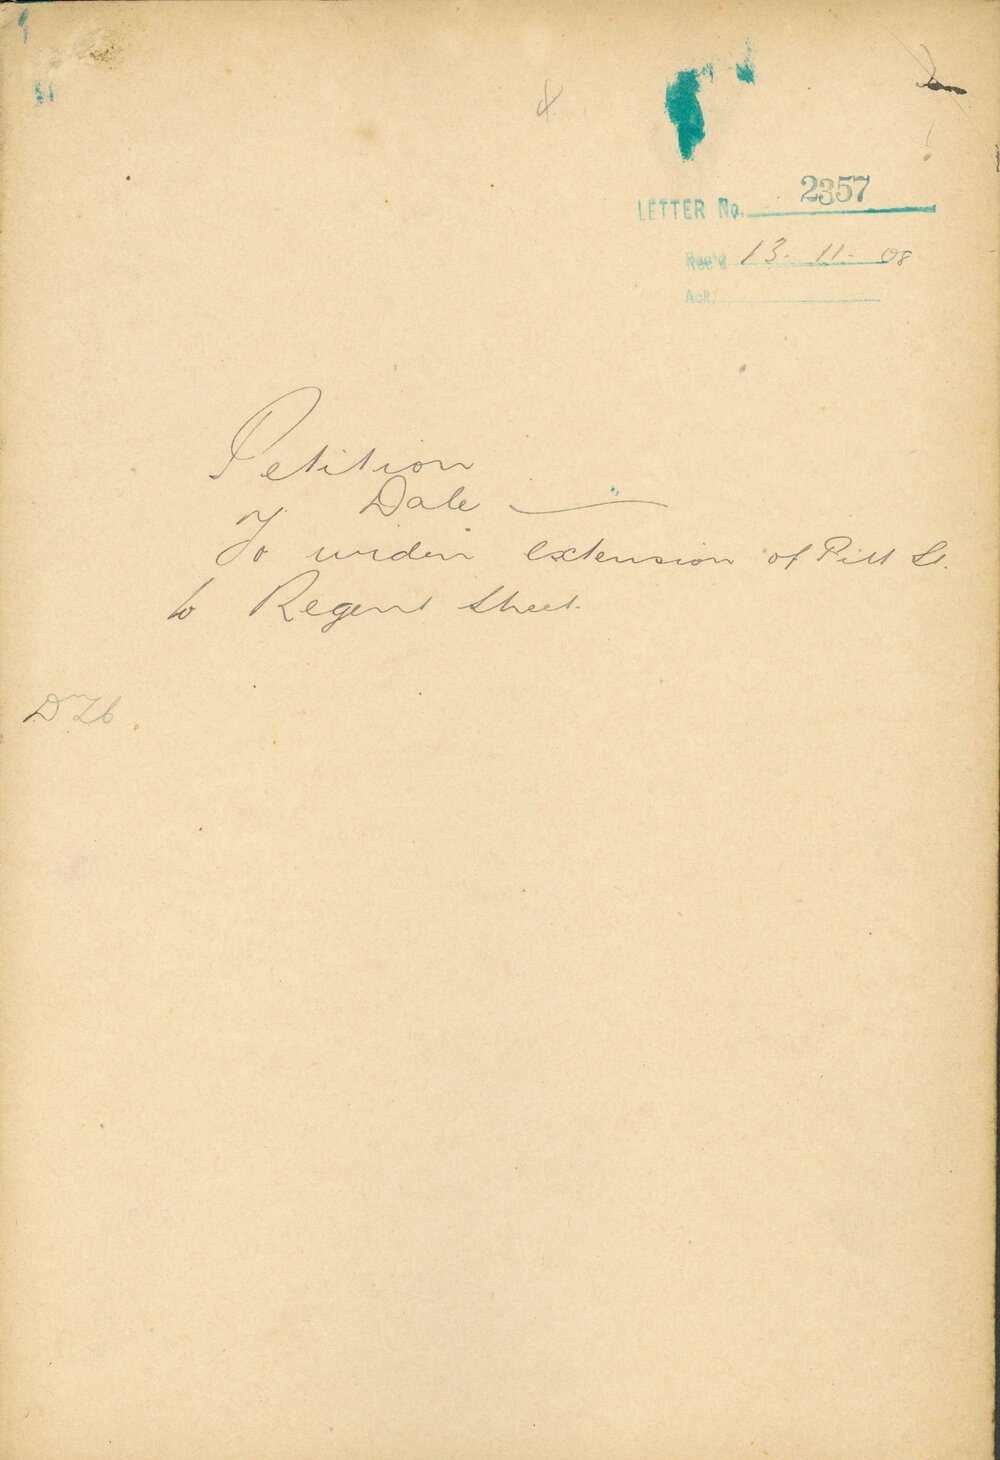 LETTER No. 2357
Rec'd 13. 11. 08
Ack.
Petition
Date
To widen extension of Pitt St.
to Regent Street.